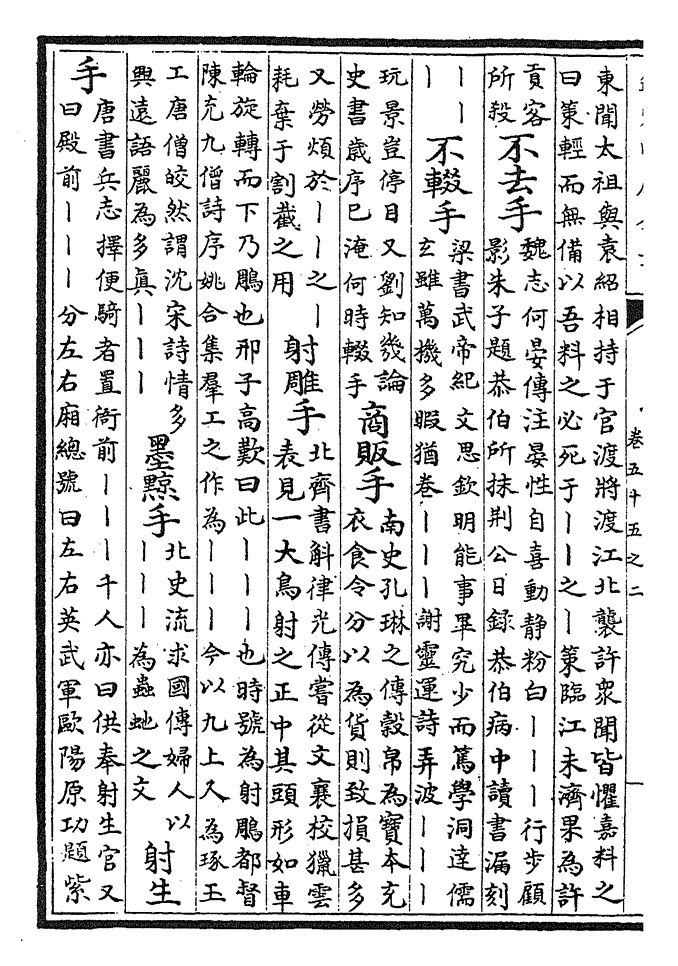 卷五十五之二
東聞太祖與袁紹相持于官渡將渡江北襲許衆聞皆懼嘉料之
曰策輕而無備以吾料之必死于丨丨之丨策臨江未濟果為許
貢客
所殺
不去手
魏志何晏傳注晏性自喜動静粉白丨丨丨行步顧
影朱子題恭伯所抹荆公日録恭伯病中讀書漏刻
丨丨
丨
不輟手
梁書武帝紀文思欽明能事畢究少而篤學洞達儒
玄雖萬機多暇猶卷丨丨丨謝靈運詩弄波丨丨丨
玩景豈停目又劉知幾論
史書歲序已淹何時輟手
商販手
南史孔琳之傳穀帛為寶本充
衣食令分以為貨則致損甚多
又勞煩於丨丨之丨
耗棄于割截之用
射雕手
北齊書斛律光傳嘗從文襄校獵雲
表見一大鳥射之正中其頭形如車
輪旋轉而下乃鵰也邢子高歎曰此丨丨丨也時號為射鵰都督
陳充九僧詩序姚合集羣工之作為丨丨丨今以九上人為琢玉
工唐僧皎然謂沈宋詩情多
興遠語麗為多真丨丨丨
墨黥手
北史流求國傳婦人以
丨丨丨為蟲虵之文
射生
手
唐書兵志擇便騎者置衙前丨丨丨千人亦曰供奉射生官又
曰殿前丨丨丨分左右廂總號曰左右英武軍歐陽原功題紫